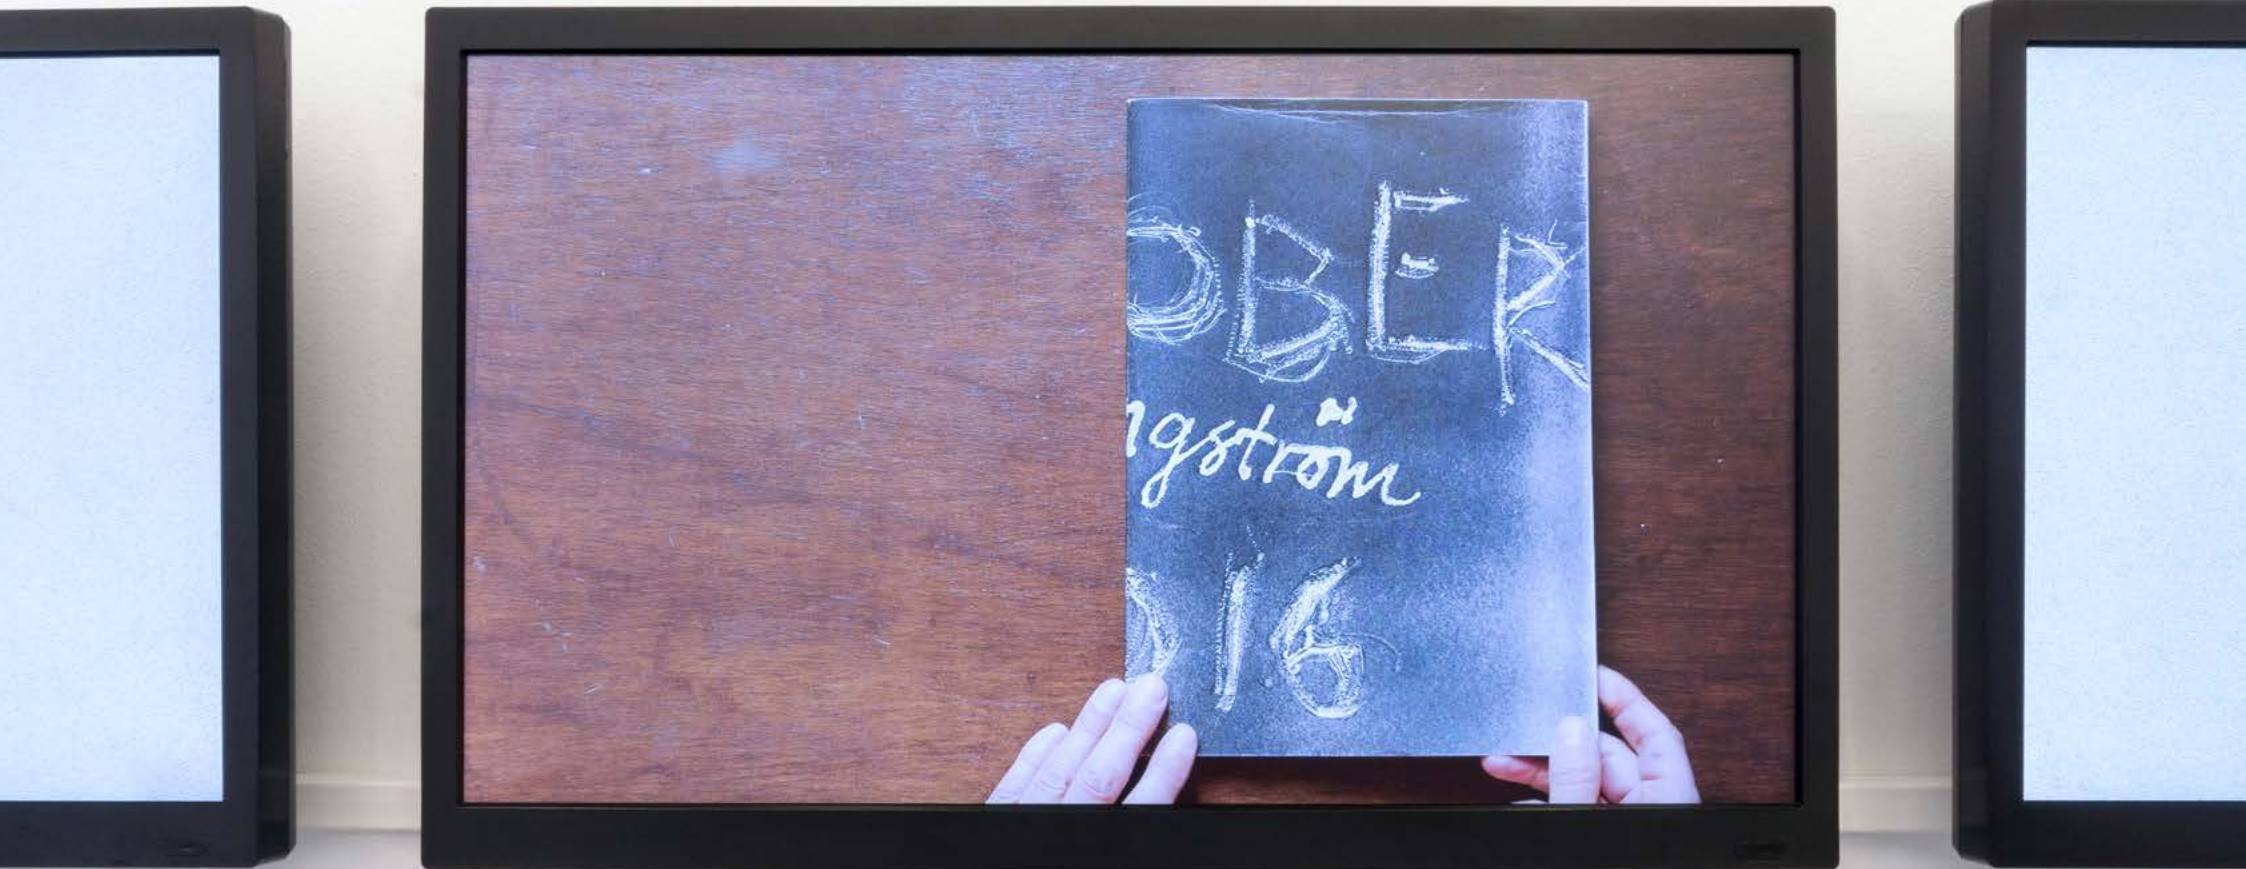 OBER
ngström
016